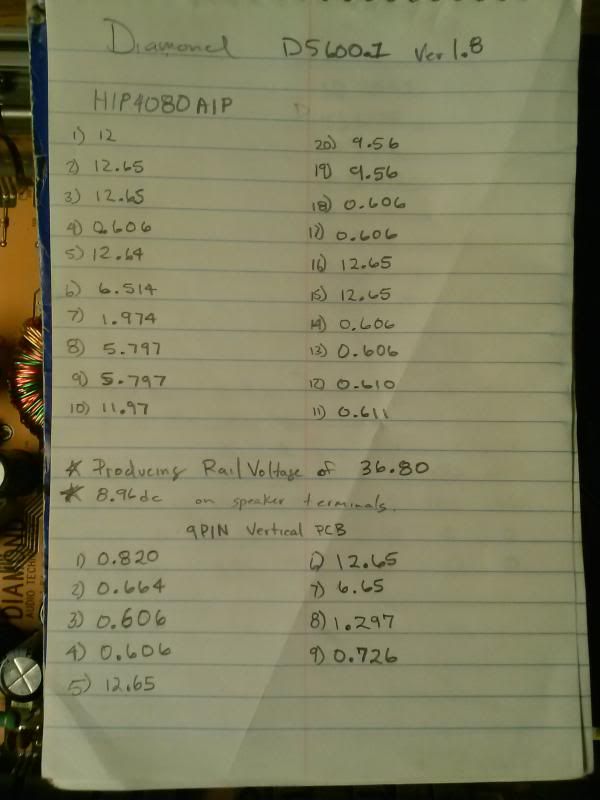 Diamond D5600.1 Ver 1.8
HIP4080AIP
1) 12
2) 12.65
3) 12.65
4) 0.606
5) 12.64
6) 6.514
7) 1.974
8) 5.797
9) 5.797
10) 11.97
20) 9.56
19) 9.56
18) 0.606
17) 0.606
16) 12.65
15) 12.65
14) 0.606
13) 0.606
12) 0.610
11) 0.611
* Producing Rail Voltage of 36.80
* 8.96dc on speaker terminals.
9PIN Vertical PCB
1) 0.820
2) 0.664
3) 0.606
4) 0.606
5) 12.65
6) 12.65
7) 6.65
8) 1.297
9) 0.726
DIAMOND
AUDIO TECH